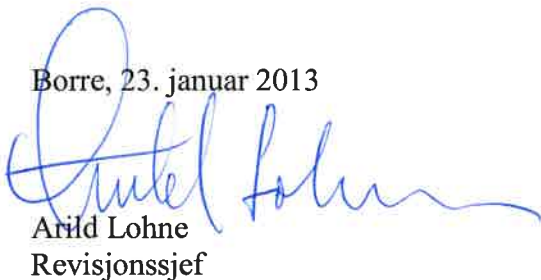 Borre, 23. januar 2013
Arild Lohne
Revisjonssjef